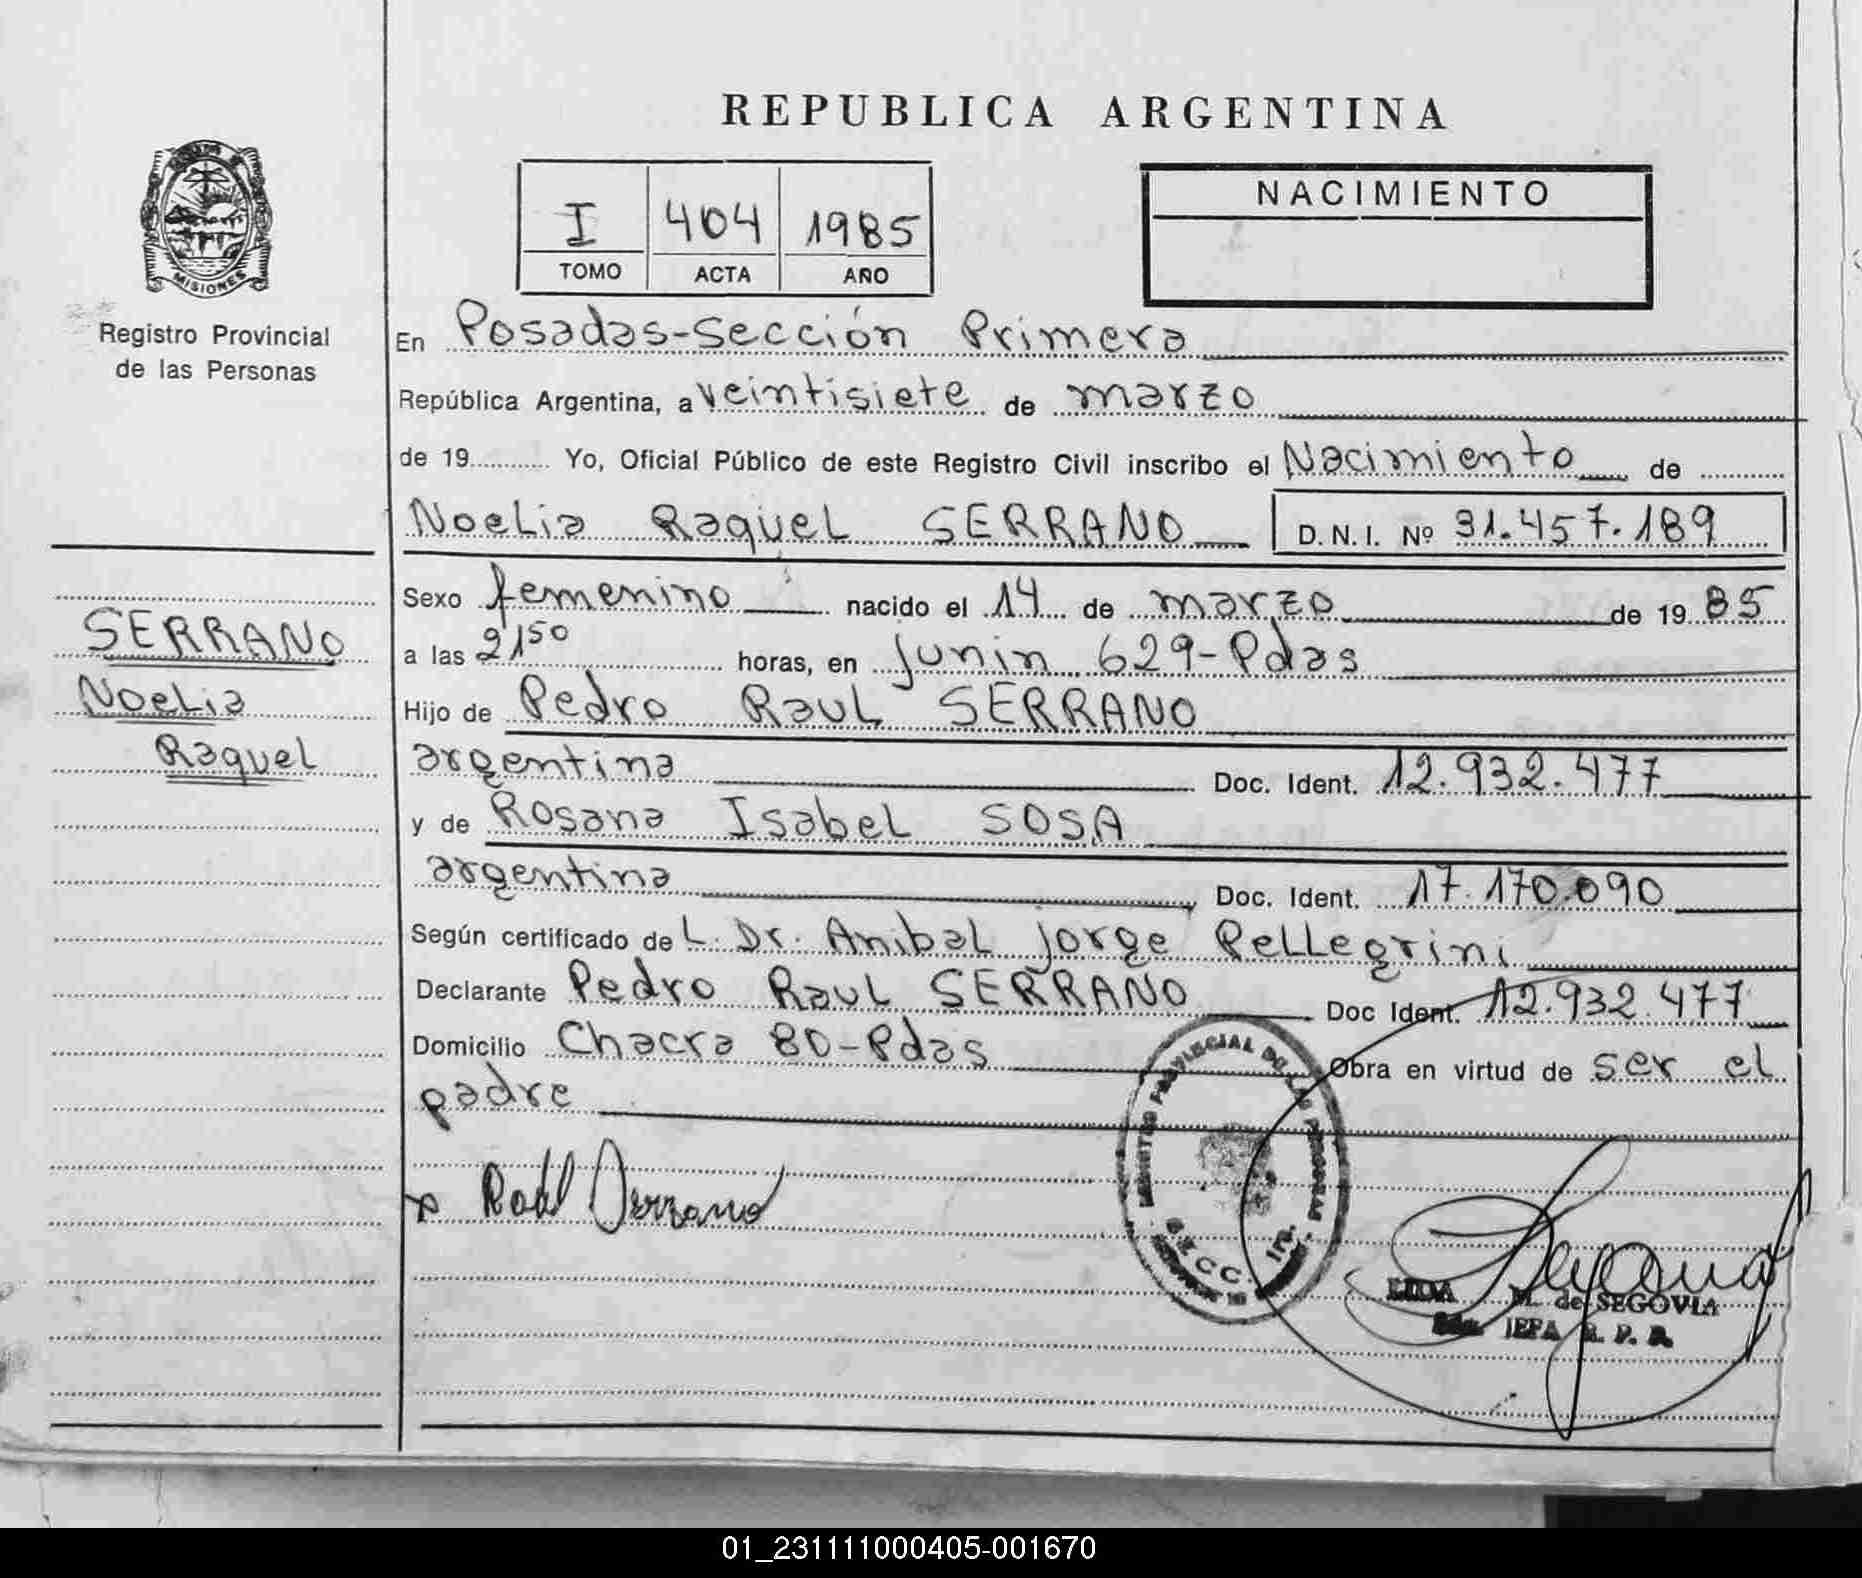 REPUBLICA ARGENTINA
I 404 1985
TOMO ACTA AÑO
NACIMIENTO
MISIONES
Registro Provincial
de las Personas
SERRANO
Noelia
Raquel
En Posadas-Sección Primera
República Argentina, a veintisiete de marzo
de 19 Yo, Oficial Público de este Registro Civil inscribo el Nacimiento de
Noelia Raquel SERRANO D.N.I. Nº 31.457.189
Sexo femenino nacido el 14 de marzo de 19 85
a las 21⁵⁰ horas, en Junin 629-Pdas
Hijo de Pedro Raul SERRANO
argentina Doc. Ident. 12.932.477
y de Rosana Isabel SOSA
argentina Doc. Ident. 17.170.090
Según certificado de L. Dr. Anibal Jorge Pellegrini
Declarante Pedro Raul SERRANO Doc Ident. 12.932.477
Domicilio Chacra 80-Pdas Obra en virtud de ser el
padre
Raul Serrano
REGISTRO PROVINCIAL DE LAS PERSONAS
M. de SEGOVIA
JEFA R. P. P.
01_231111000405-001670